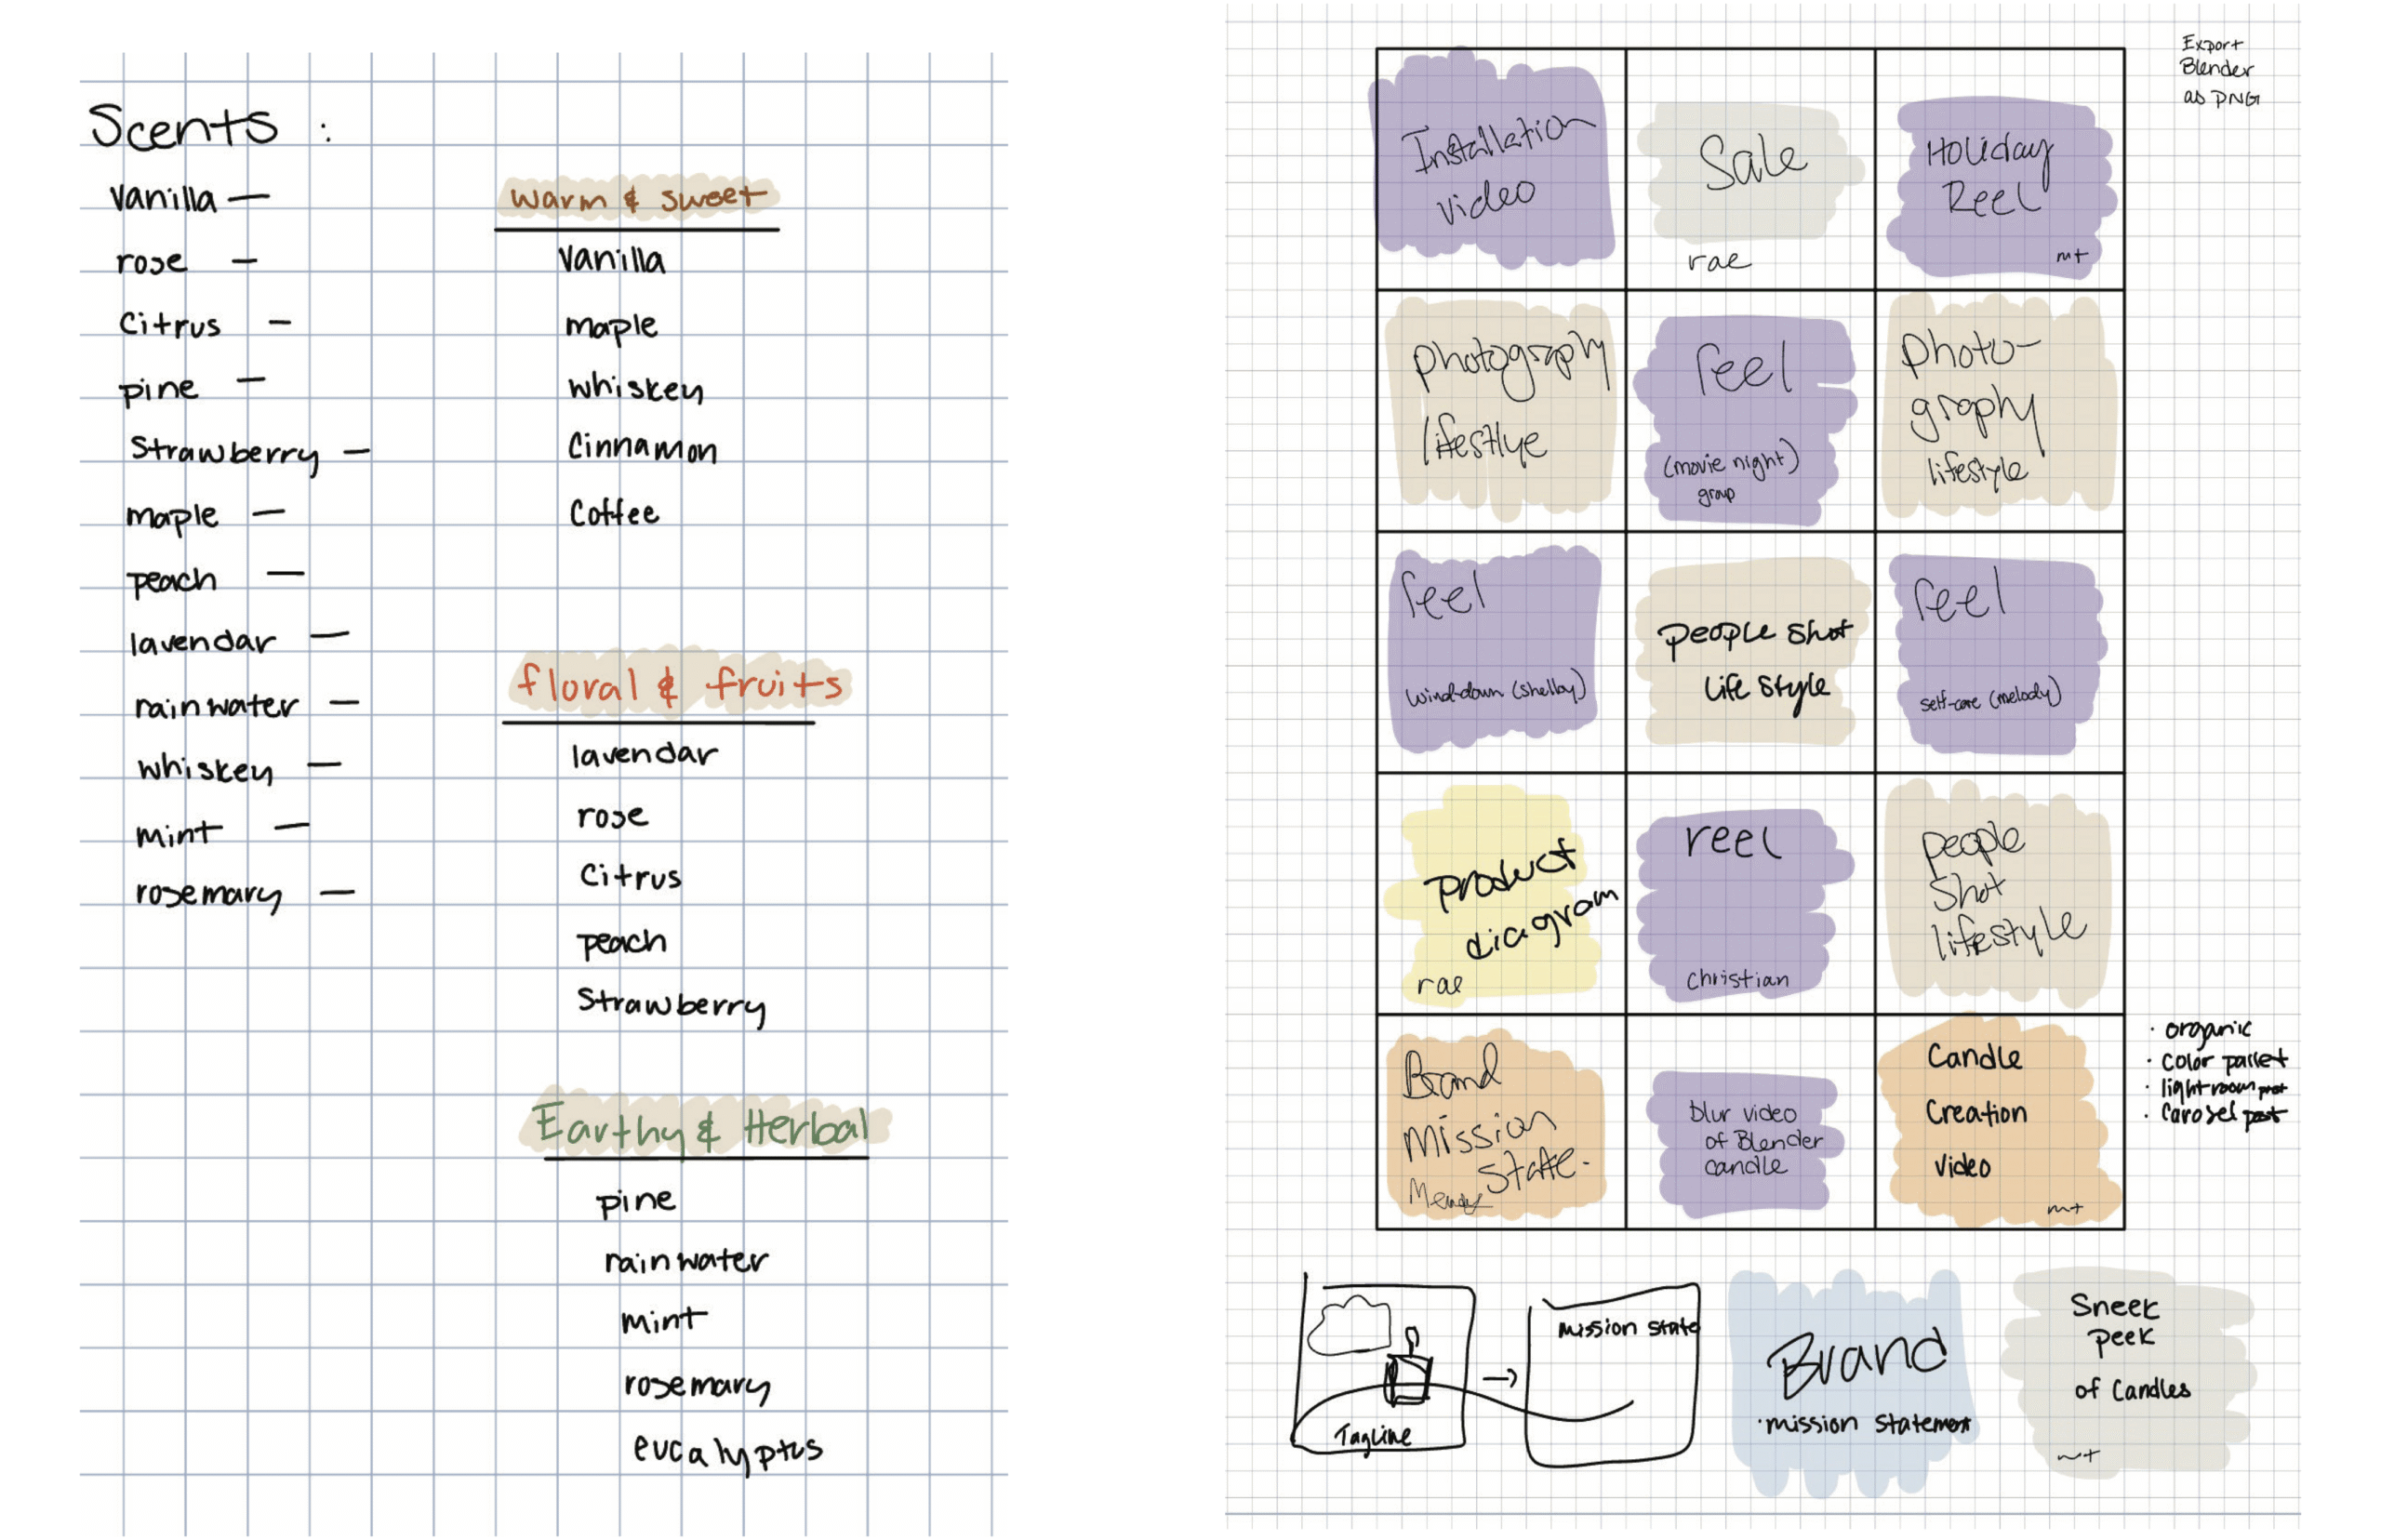 Scents :
vanilla —
rose —
Citrus —
pine —
Strawberry —
maple —
peach —
lavendar —
rainwater —
whiskey —
mint —
rosemary —
warm & sweet
vanilla
maple
whiskey
Cinnamon
Coffee
floral & fruits
lavendar
rose
Citrus
peach
Strawberry
Earthy & Herbal
pine
rainwater
mint
rosemary
eucalyptus
Export
Blender
as PNG
Installation
video
Sale
rae
Holiday
Reel
mt
photography
lifestlye
reel
(movie night)
group
photo-
graphy
lifestyle
reel
wind-down (shelby)
people shot
life style
reel
self-care (melody)
product
diagram
rae
reel
christian
people
shot
lifestyle
Brand
mission
state.
blur video
of Blender
candle
Candle
Creation
video
mt
· organic
· color pallet
· lightroom
· carosel post
Tagline
→
mission state
Brand
·mission statement
Sneek
peek
of Candles
mt